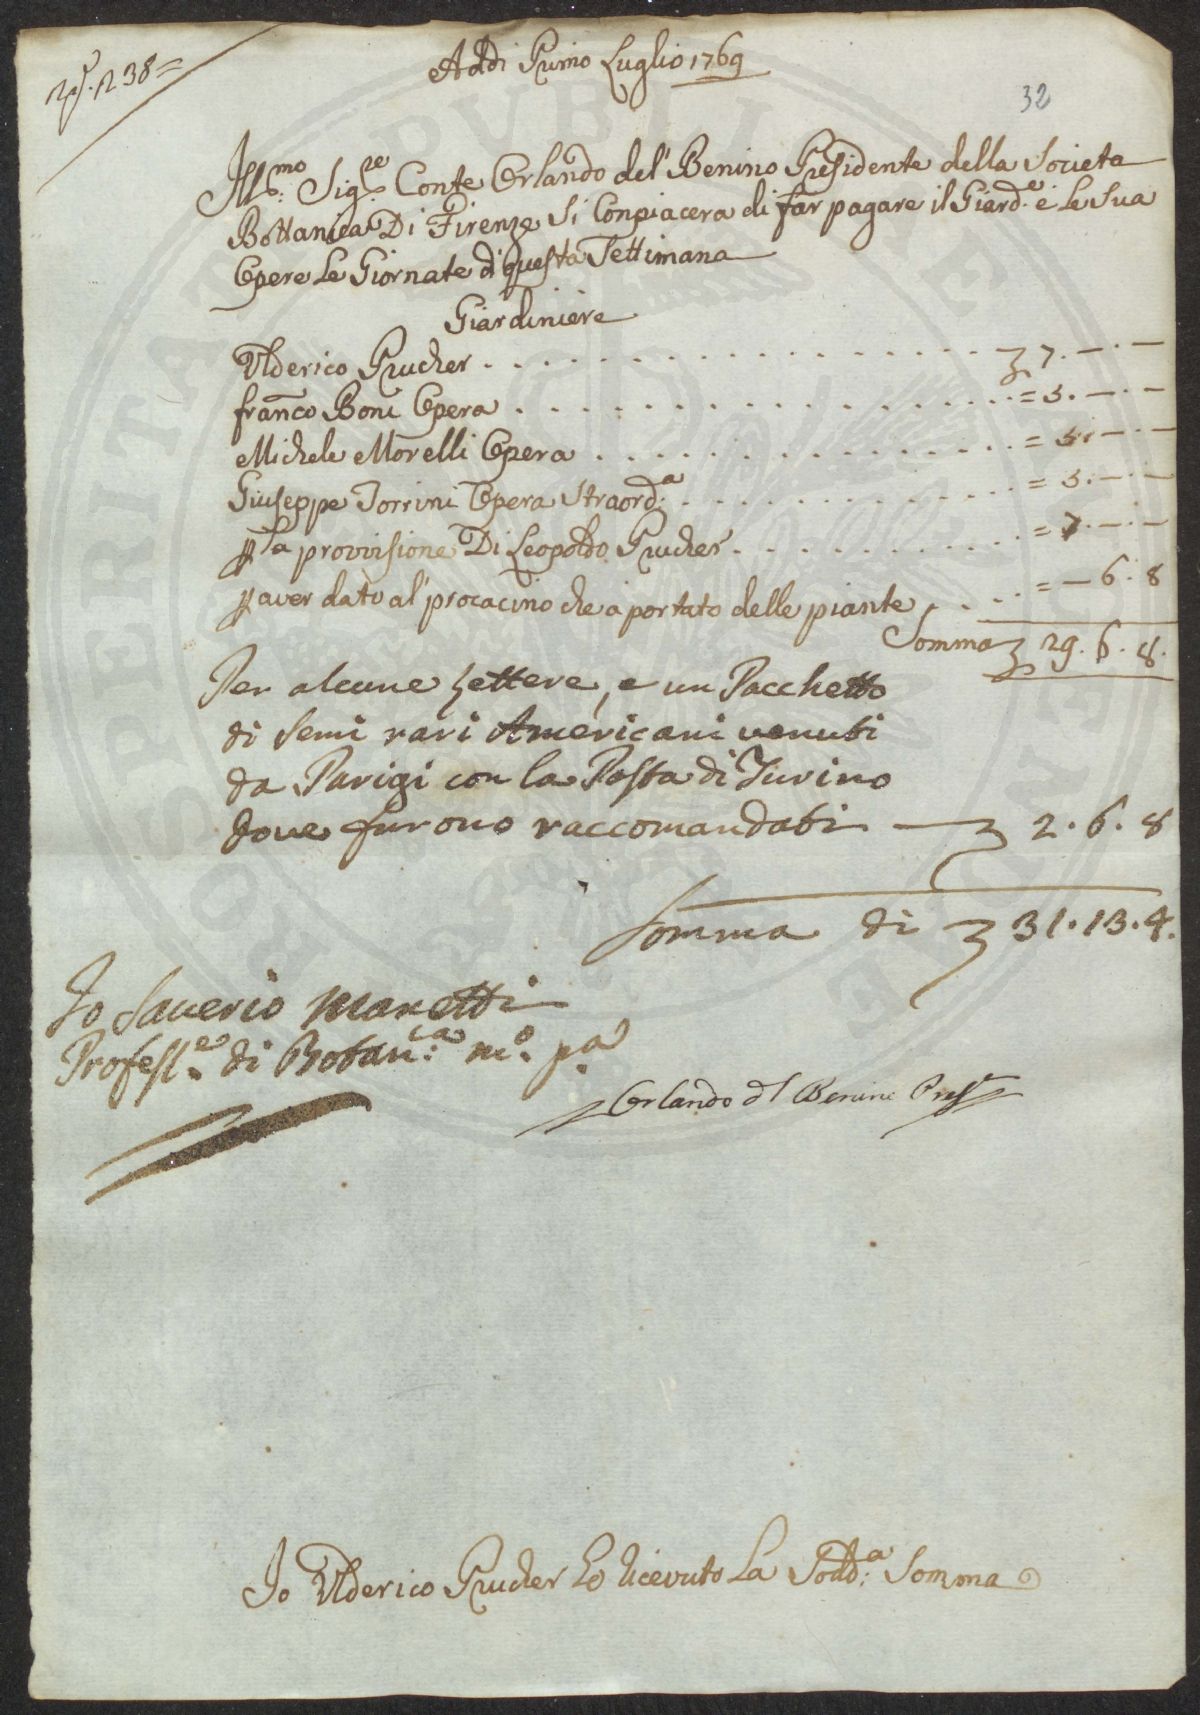 N.º 238=
Addi Primo Luglio 1769
32
Ill:mo Sig:re Conte Orlando del' Benino Presidente della Societa
Bottanica Di Firenze Si Conpiacera di far pagare il Giard:e e Le Sua
Opere Le Giornate di questa Settimana
Giardiniere
Ulderico Prucher . . . . . . . . . . . . . . . . 7.—.—
Franco Boni Opera . . . . . . . . . . . . . . . . = 5.—.—
Michele Morelli Opera . . . . . . . . . . . . . . = 5.—.—
Giuseppe Torrini Opera Straord:a . . . . . . . . . . . = 5.—.—
p la provvisione Di Leopoldo Prucher . . . . . . . . . = 7.—.—
p aver dato al' procacino che a portato delle piante . . . . = — 6. 8
Somma 29. 6. 8.
Per alcune Lettere, e un Pacchetto
di Semi rari Americani venuti
da Parigi con la Posta di Turino
dove furono raccomandati — 2. 6. 8
Somma di 31. 13. 4.
Io Saverio Manetti
Profess:e di Botan:ca m:o p:a
Orlando dl Benino Pres:e
Io Ulderico Prucher ho ricevuto La Sodd:a Somma
SPERITAT PVBLI